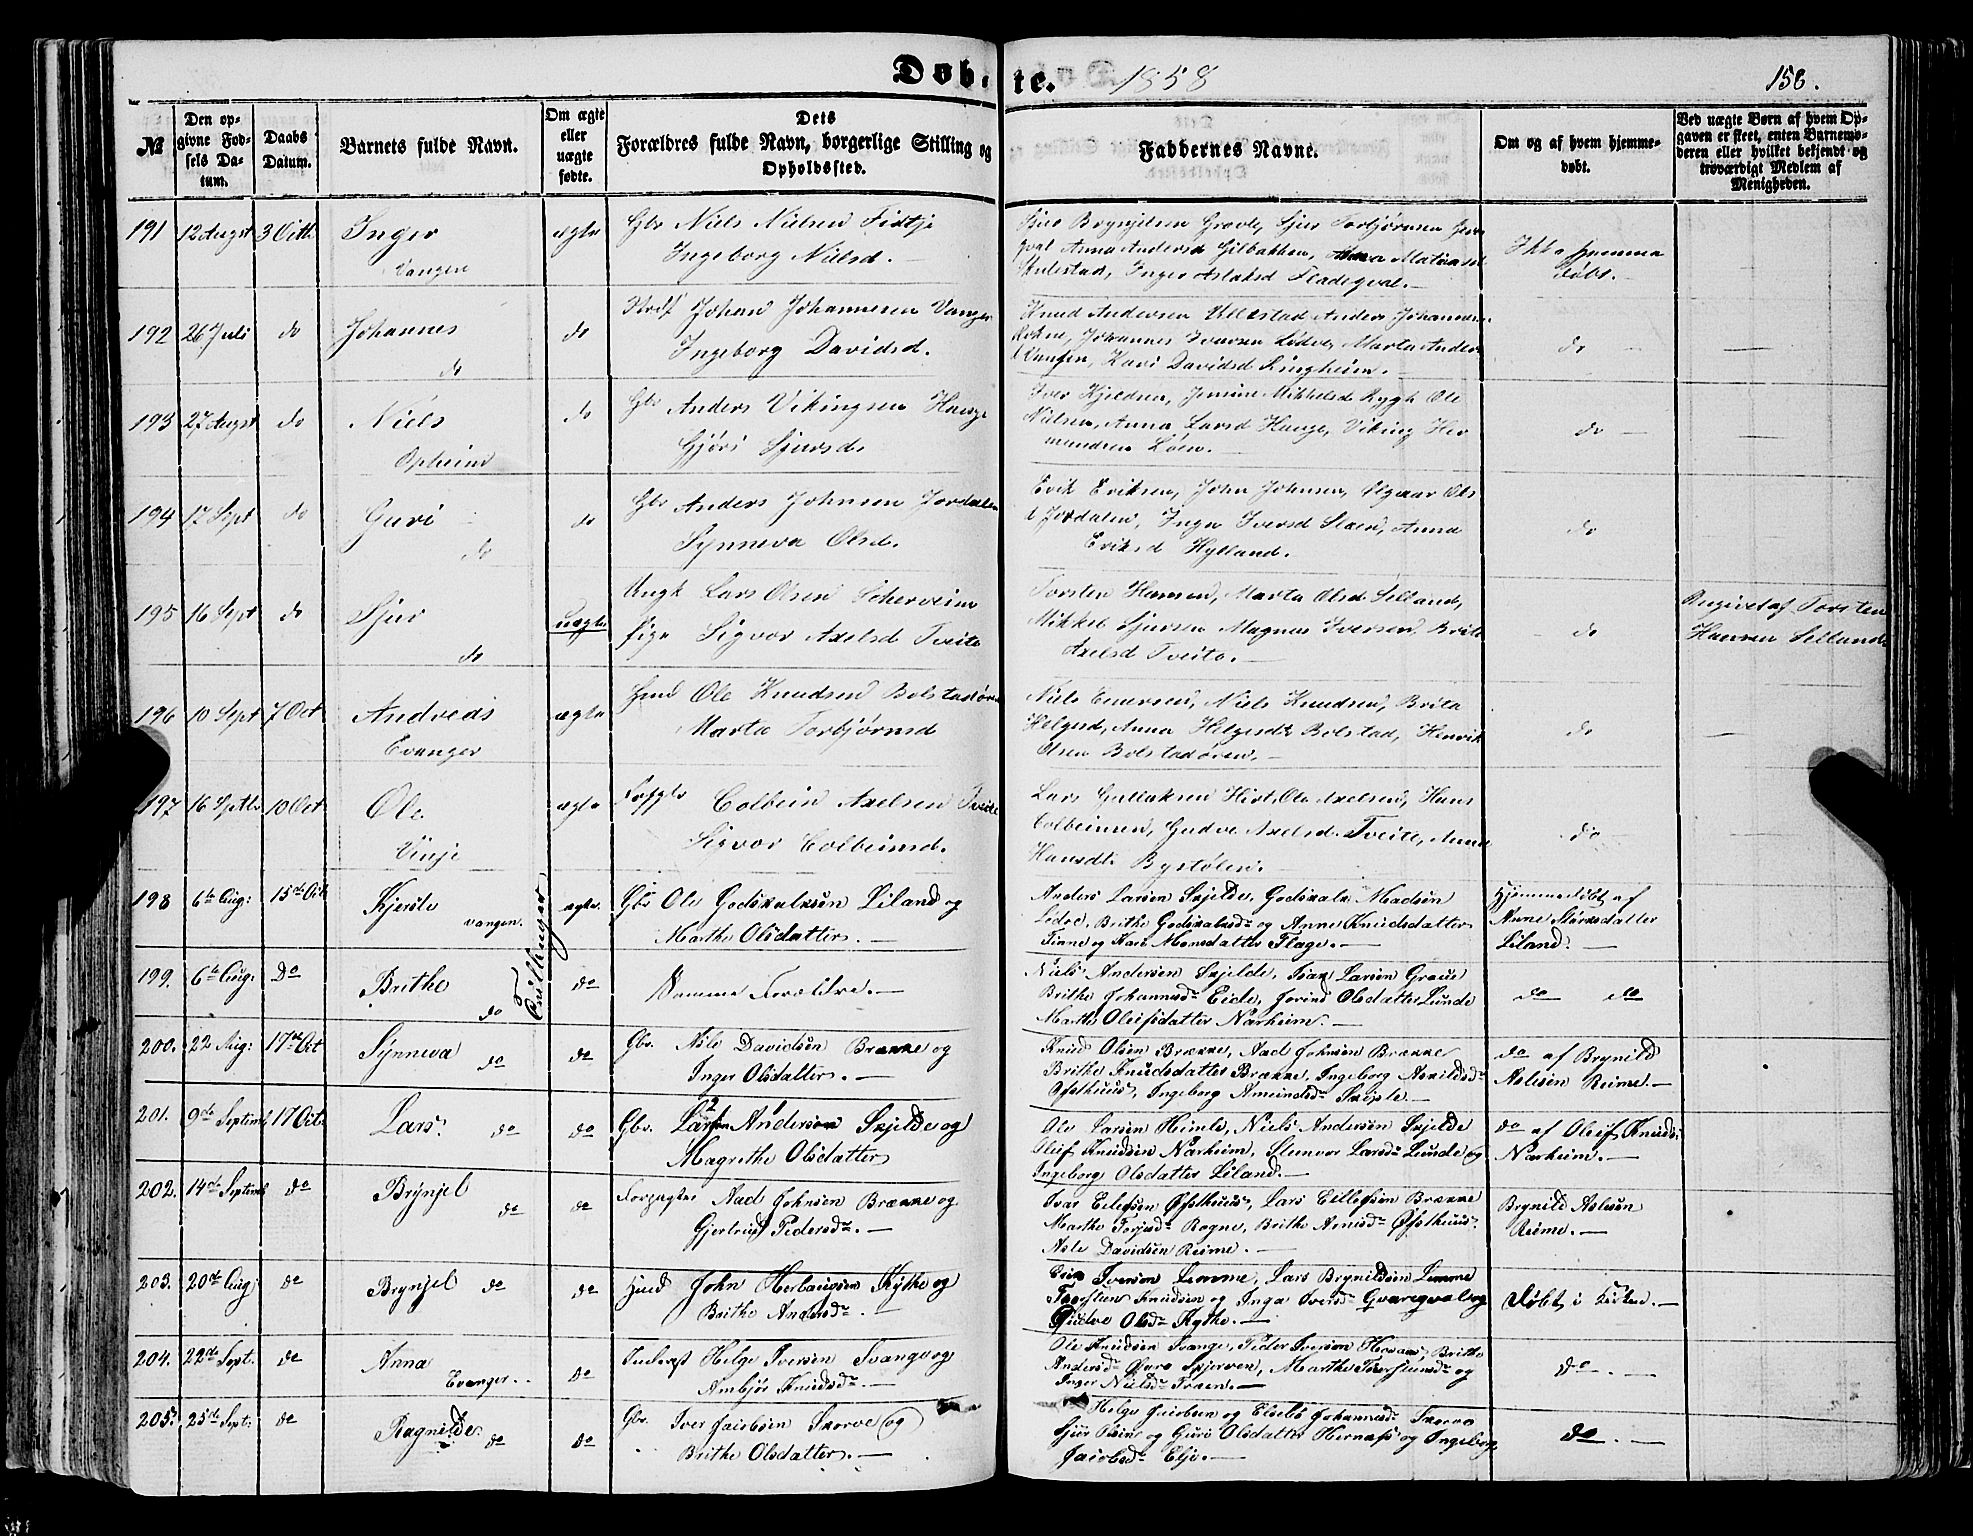 Døbte. 1858
158.
№
Den opgivne Fødsels Datum.
Daabs Datum.
Barnets fulde Navn.
Om ægte eller uægte fødte.
Dets Forældres fulde Navn, borgerlige Stilling og Opholdssted.
Faddernes Navne.
Om og af hvem hjemmedøbt.
Ved uægte Børn af hvem Opgaven er skeet, enten Barnemoderen eller hvilket bekjendt og troværdigt Medlem af Menigheden.
191 12 Augst 3 Octb Inger ægte Gbr Niels Nielsen
Vangen Ingeborg Nielsd. —
Torbjørnsen
Anna Andersd Gilbakken,
Inger Aslaksd Fladeqval. —
Ikke hjemme døbt. —
192 26 Juli do Johannes do Johan Johannesen Vangen
do Ingeborg Davidsd.
Knud Andersen Ullestad Anders Johannesen
Rokne, Johannes Iversen Lødve, Marta Anders
Vangen, Kari Davidsd Ringheim. —
do —
193 27 Augst do Niels do Gbr Anders Vikingsen Hauge
Opheim Gjøri Sjursd.
Iver Kjeldsen, Mikkelsd Rygh Ole
Nielsen, Anna Larsd Hauge, Viking Her
mundsen Løen. —
do —
194 12 Sept do Guri do Gbr Anders Johnsen Jordalen
do Synneva Olsd.
Erik Eriksen, John Johnsen, Ols
Jordalen, Inga Iversd Slaen, Anna
Eriksd Hylland.
do
195 16 Sept do Sjur uægte Ungk Lars Olsen Scherveim
do Pige Sigvor Axelsd Tveite
Torsten Hansen, Marta Olsd Selland,
Mikkel Sjursen Magnus Iversen Brite
Axelsd Tveite. —
do
Angivet af Torsten
Hansen Selland
196 10 Sept 7 Oct Andreas ægte Hmd Ole Knudsen Bolstadøren
Evanger Marta Torbjørnsd
Niels Einersen, Niels Knudsen, Brita
Helgesd, Anna Helgesdt Bolstad, Henrik
Olsen Bolstadøren. —
do —
197 16 Septbr 10 Oct Ole ægte Colbein Axelsen Tveite
Vinje Sigvor Colbeinsd.
Lars Gullaksen Hirt, Ole Axelsen, Hans
Colbeinsen, Gudve Axelsd. Tveite, Anna
Hansdt. Bystølen.
do —
Tvillinger
198 6te Aug: 15de Oct Kjerste ægte. Gbr Ole Godskalksen Liland og
Vangen. Marthe Olsdatter. —
Anders Larsen Skjelde, Godskalk Madsen
Lødve, Brithe Godskalksd og Anne Knudsdatter
Finne og Kari Monsdatter Flage. —
Hjemmedøbt af
Anne Monsdatter
Liland. —
199. 6te Aug: Do Brithe do Samme Forældre. —
do
Niels Andersen Skjelde, Isak Larsen Graue
Brithe Johannesd Eide, Jorind Olsdatter Lunde
Marthe Oleifsdatter Narheim. —
do do
200. 22 Aug: 17de Oct Synneva do do Gbr. Asle Davidsen Brække og
Inger Olsdatter. —
Knud Olsen Brække, Aad Johnsen Brække
Brithe Knudsdatter Brække, Ingeborg Arnildsd
Øfsthuus, Ingeborg Amundsd Skiple —
do af Brynild
Aslesen Reime. —
201. 9de Septemb 17 Octb Lars do do Gbr. 2 Larsen 1 Anderson Skjelde og
Magrethe Olsdatter
Ole Larsen Himle, Niels Andersen Skjelde
Oleif Knudsen Narheim, Steinvor Larsd Lunde og
Ingeborg Olsdatter Liland. —
do af Oleif Knuds:
Narheim. —
202. 14de Septemb do Brynjel do do Aad Johnsen Brække og
Gjertrud Pedersd. —
Ivar Eilefsen Øfsthuus, Lars Eillefsen Brække
Marthe Torjusd Rogne, Brithe Arnisd Øfsthuus
Asle Davidsen Reime. —
Brynild Aslesen
Reime. —
203. 20de Aug do Brynjel do do Huusmd John Herlaugsen Kythe og
Brithe Andersd. —
Erik Iversen Lemme, Lars Brynildsen Lemme
Thorsten Knudsen og Inga Iversd Gvareqval og
Gudve Olsd Kythe. —
døbt i Kirken. —
204. 22de Sept. do Anna do Inderst Helge Iversen Svange og
Evanger. Ambjør Knudsd. —
Ole Knudsen Svange, Peder Iverson Horvei, Brithe
Andersd Øvre Skjerven, Marthe Thorstensd og
Inger Nielsd Fraen. —
do. —
205. 25de Sept: do Ragnilde do do Gbr. Iver Jacobsen Skorve og
Brithe Olsdatter. —
Helge Jacobsen og Elseleb Johannesd Skorve
Sjur og Guri Olsdatter Hernæs og Ingeborg
Jacobsd Elje. —
do. —